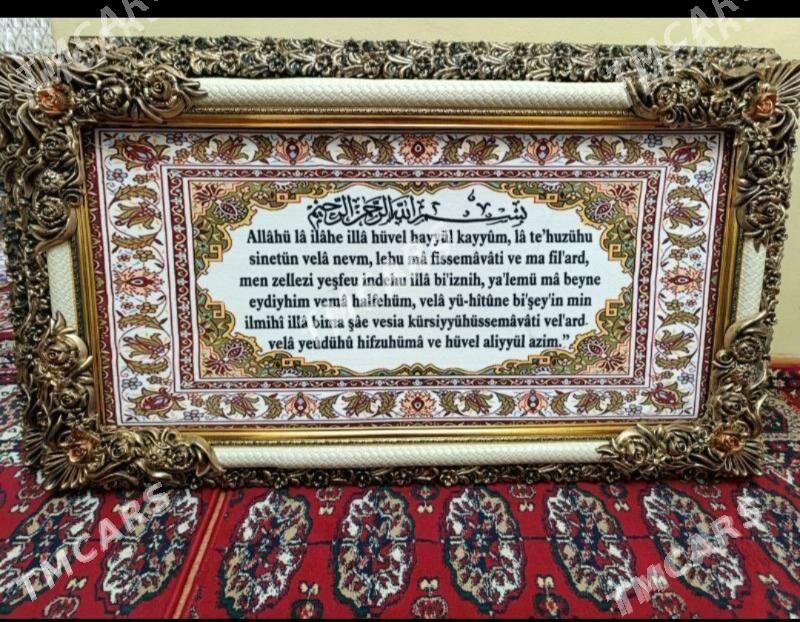 بسم الله الرحمن الرحيم
Allâhü lâ ilâhe illâ hüvel hayyül kayyûm, lâ te'huzühu
sinetün velâ nevm, lehu mâ fissemâvâti ve ma fil'ard,
men zellezi yeşfeu indehu illâ bi'iznih, ya'lemü mâ beyne
eydiyhim vemâ halfehüm, velâ yü-hîtûne bi'şey'in min
ilmihî illâ bima şâe vesia kürsiyyühüssemâvâti vel'ard.
velâ yeûdühû hifzuhümâ ve hüvel aliyyül azim.”
TMCARS
TMCARS
TMCARS
TMCARS
TMCARS
TMCARS